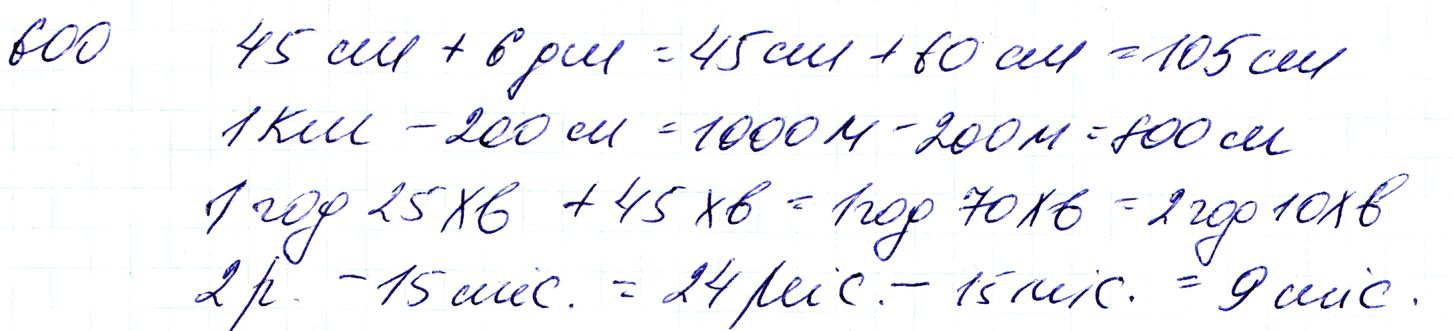 600 45 см + 6 дм = 45 см + 60 см = 105 см
1 км - 200 м = 1000 м - 200 м = 800 м
1 год 25 хв + 45 хв = 1 год 70 хв = 2 год 10 хв
2 р. - 15 міс. = 24 міс. - 15 міс. = 9 міс.